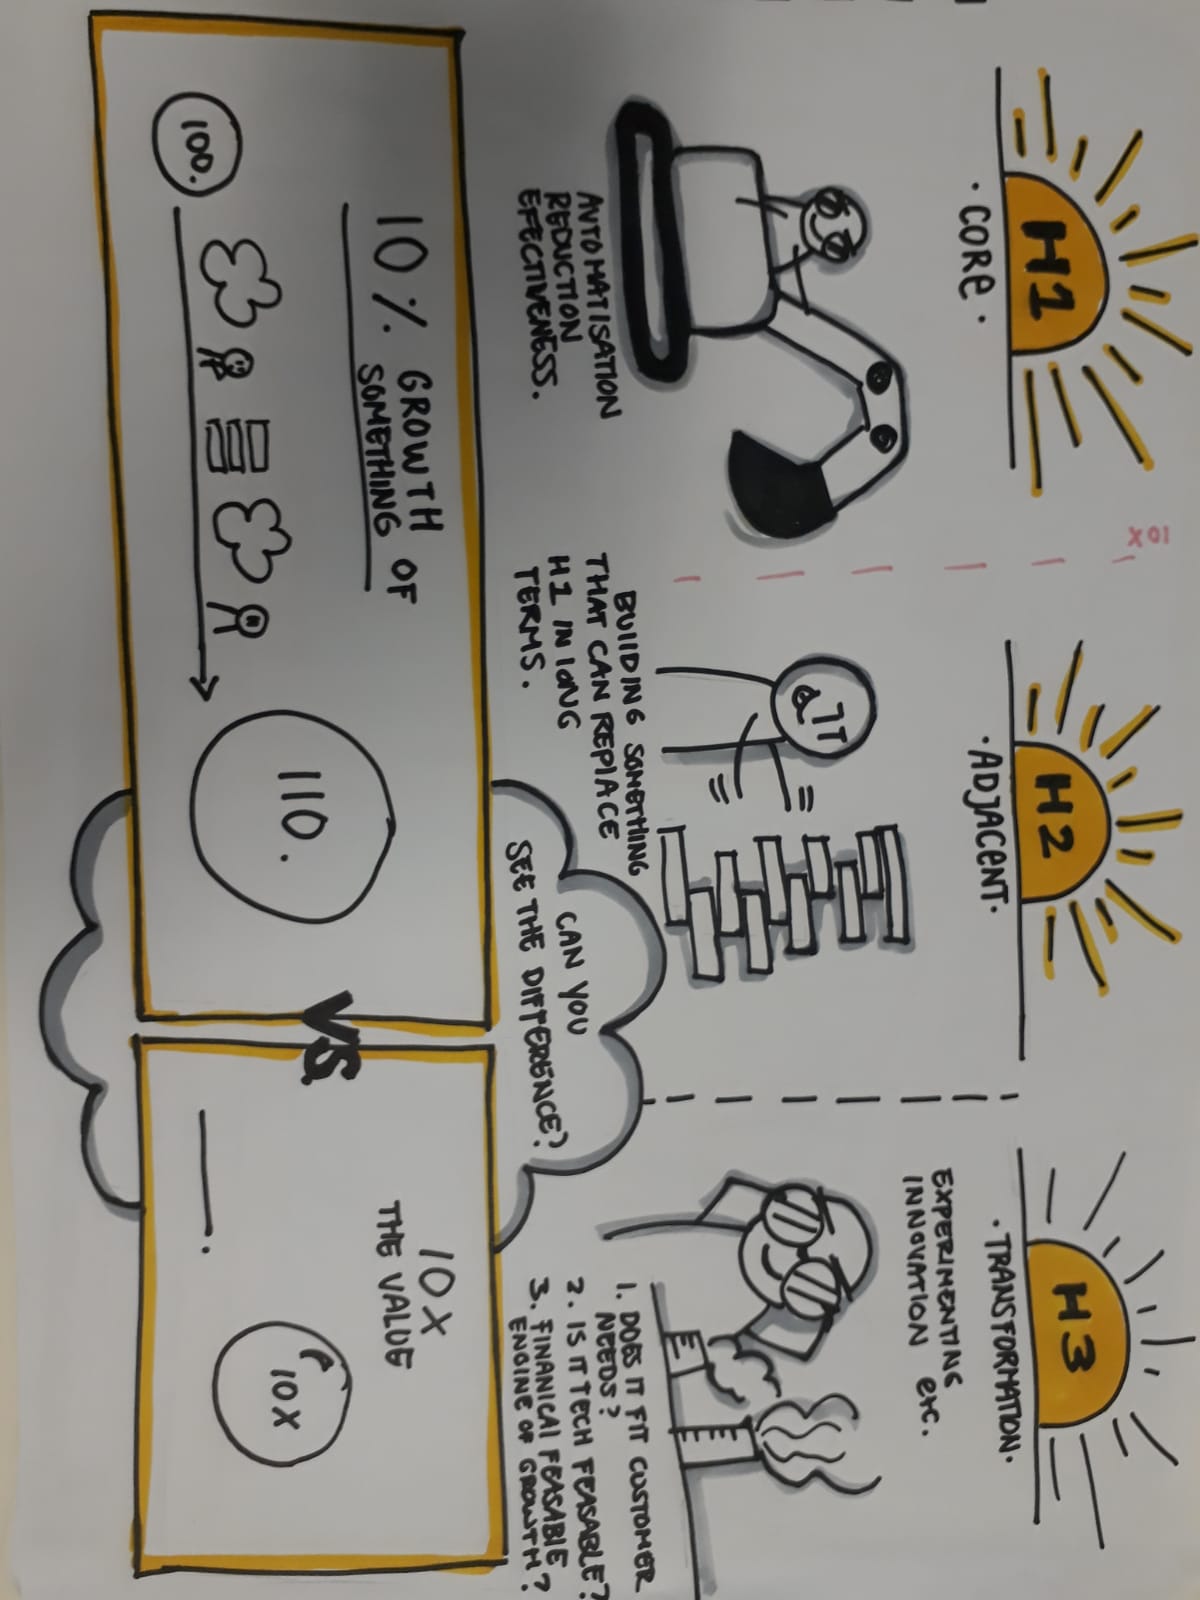 H1
· CORE ·
AUTOMATISATION
REDUCTION
EFECTIVENESS.
10X
H2
· ADJACENT ·
BUIlDING SOMETHING
THAT CAN REPlACE
H1 IN lONG
TERMS.
H3
· TRANSFORMATION.
EXPERIMENTING
INNOVATION etc.
1. DOES IT FIT CUSTOMER
NEEDS?
2. IS IT TECH FEASABLE?
3. FINANICAl FEASABlE
ENGINE OF GROWTH?
CAN YOU
SEE THE DIFFERENCE?
10 % GROWTH OF
SOMETHING
100.
110.
VS
10X
THE VALUE
10X